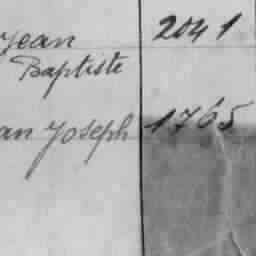 Jean 2041
Baptiste
an Joseph 1765